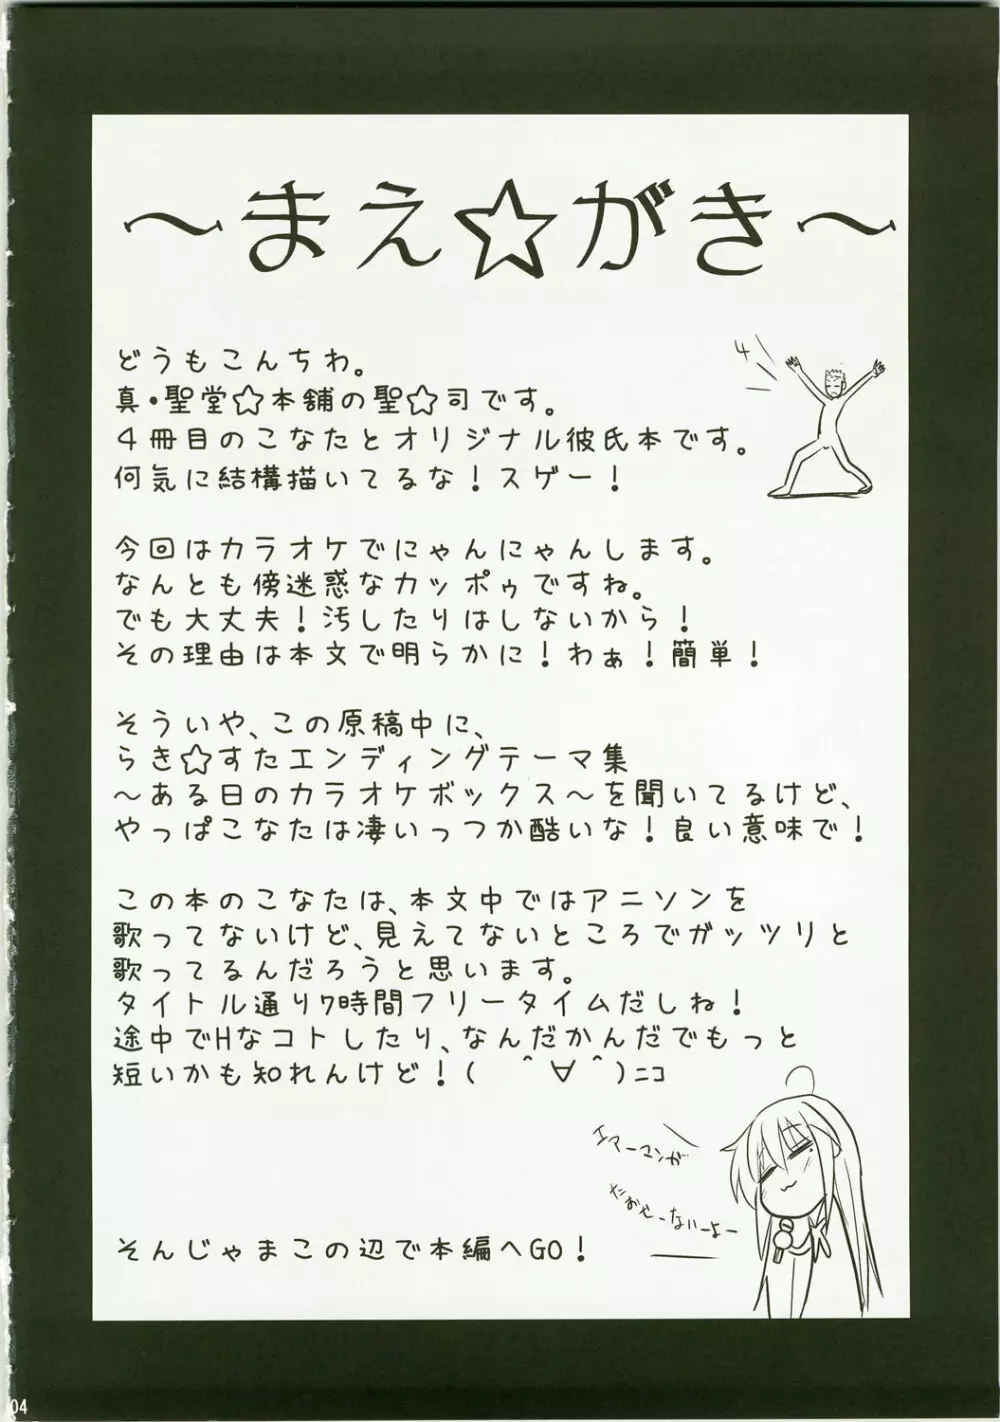 ～まえ☆がき～
4
どうもこんちわ。
真・聖堂☆本舗の聖☆司です。
4冊目のこなたとオリジナル彼氏本です。
何気に結構描いてるな！スゲー！
今回はカラオケでにゃんにゃんします。
なんとも傍迷惑なカッポゥですね。
でも大丈夫！汚したりはしないから！
その理由は本文で明らかに！わぁ！簡単！
そういや、この原稿中に、
らき☆すたエンディングテーマ集
～ある日のカラオケボックス～を聞いてるけど、
やっぱこなたは凄いっつか酷いな！良い意味で！
この本のこなたは、本文中ではアニソンを
歌ってないけど、見えてないところでガッツリと
歌ってるんだろうと思います。
タイトル通り7時間フリータイムだしね！
途中でHなコトしたり、なんだかんだでもっと
短いかも知れんけど！( ＾∀＾)ﾆｺ
エアーマンが
たおせーないーよー
そんじゃまこの辺で本編へGO！
04